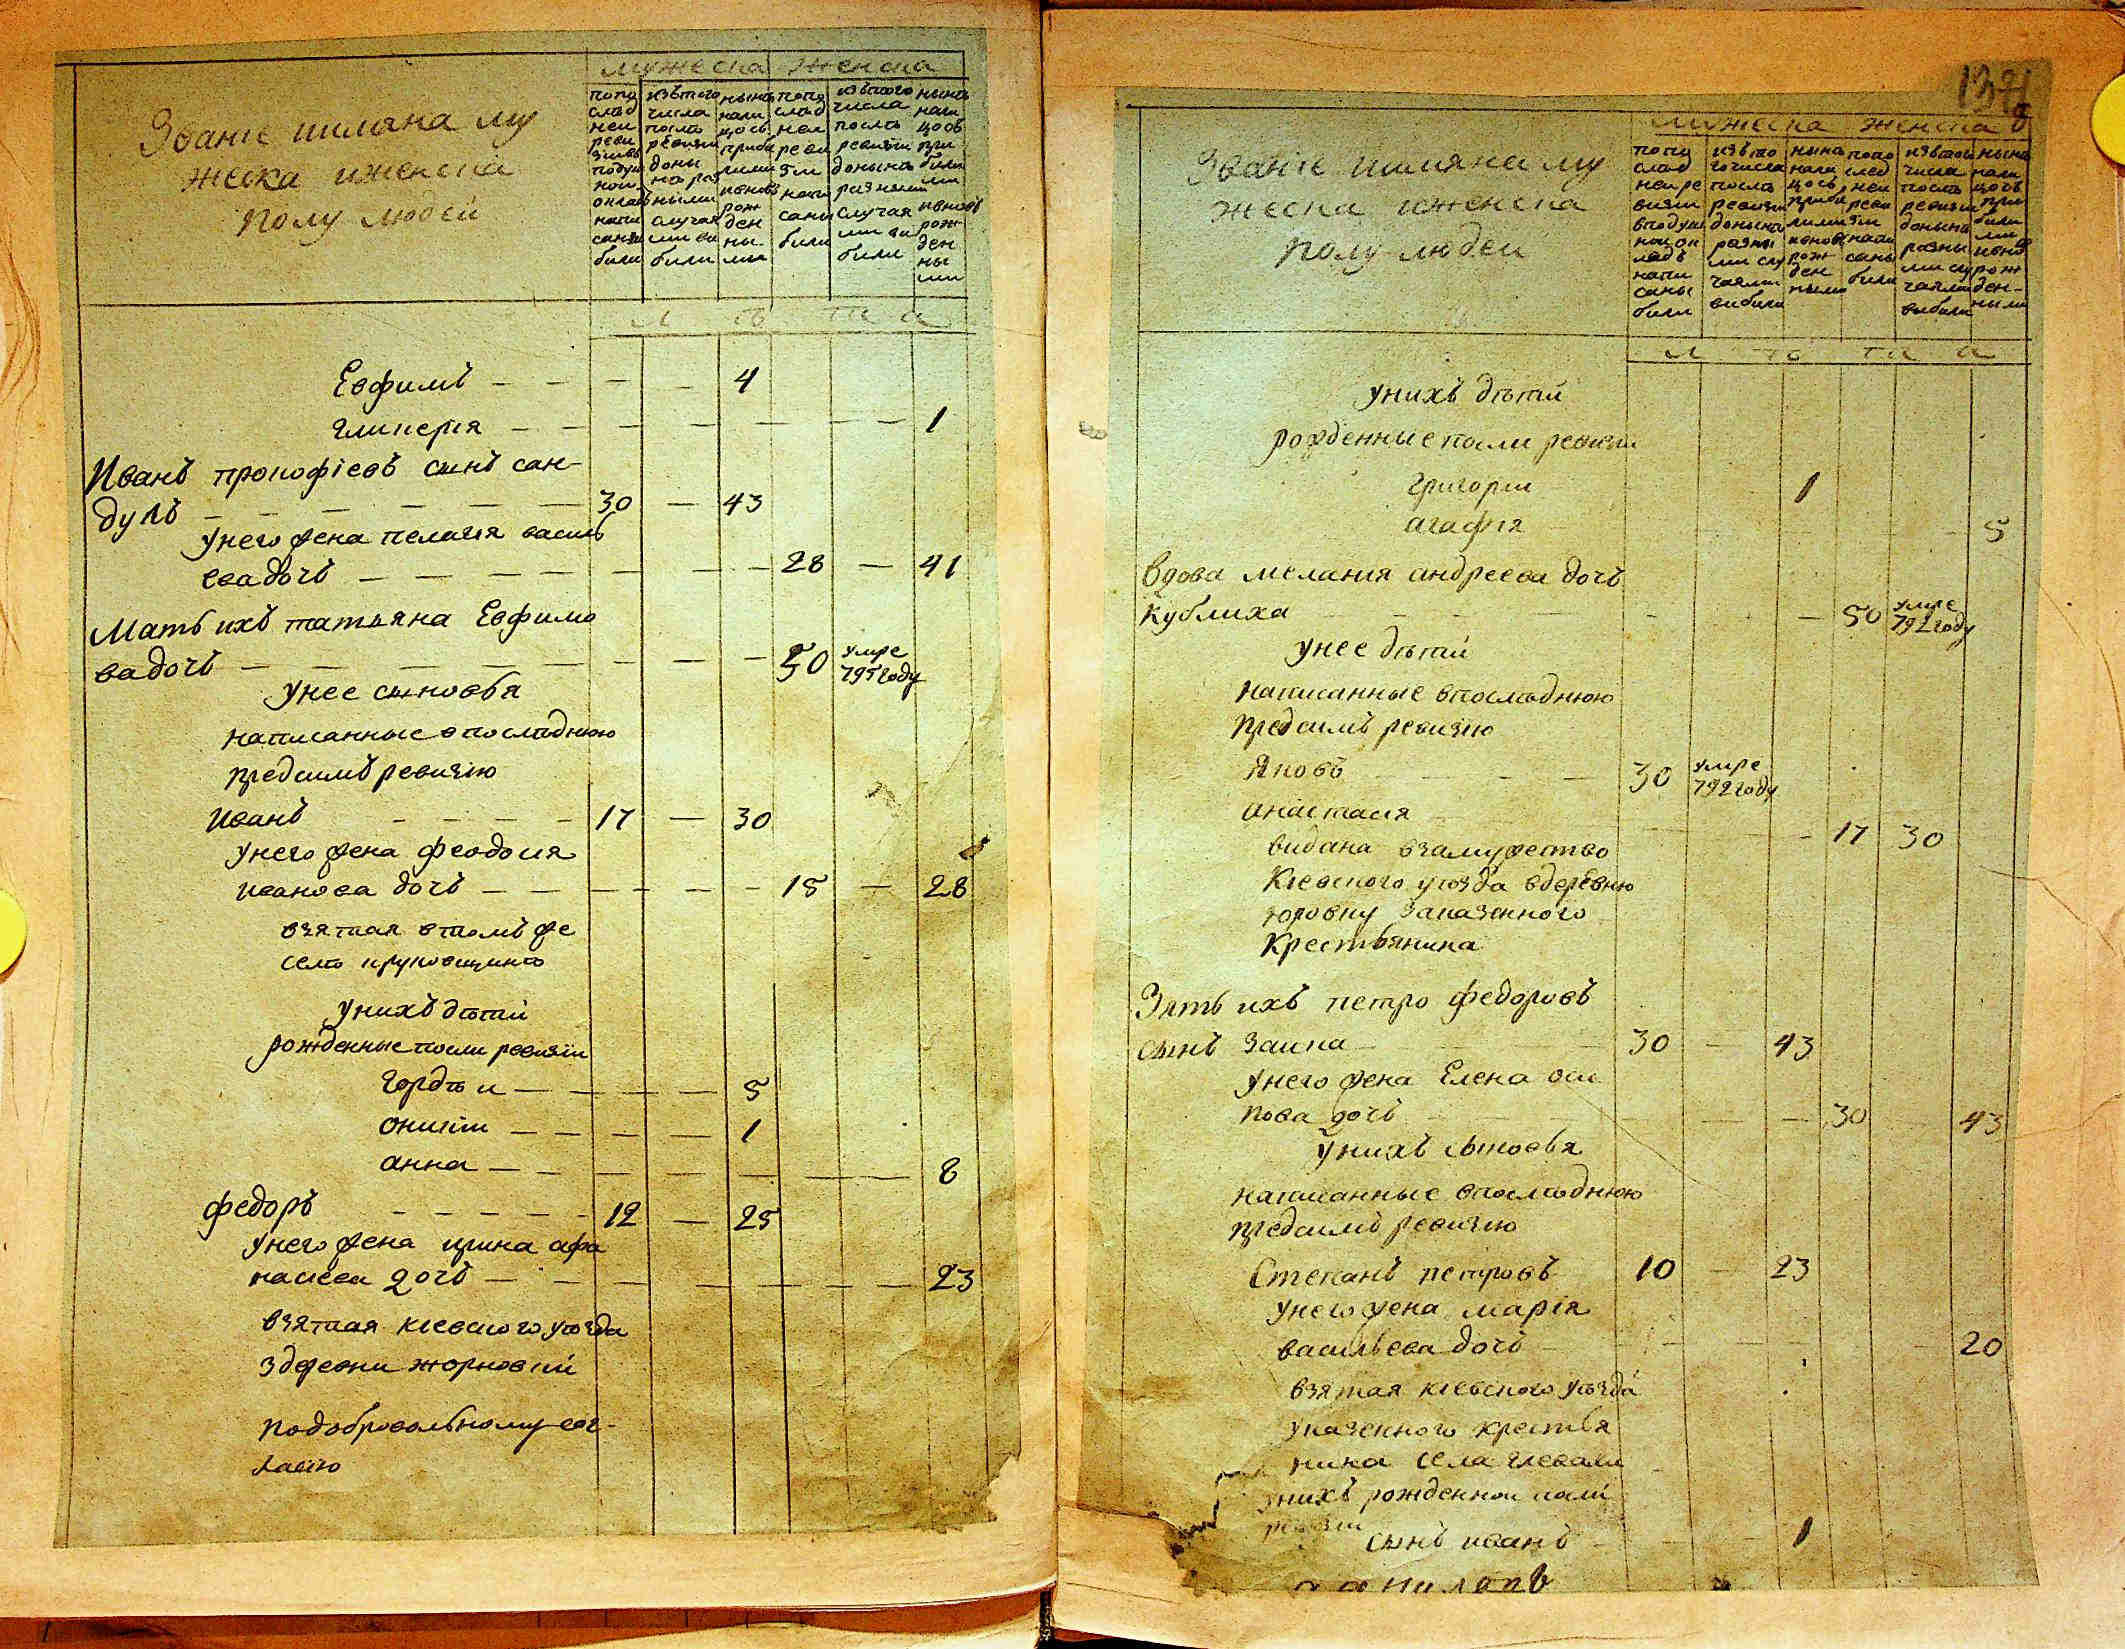 Званіе имяна му
жеска иженска
полу людей
мужеска женска
попо
след
ней
реви
зіивъ
подуш
ной
окладъ
напи
саны
были
изътого
числа
послѣ
ревизіи
доны
нѣ раз
ными
случая
ми вы
были
нынѣ
нали
цось
прибы
лыми
ивновь
рож
ден
ны
ми
попо
след
ней
реви
зіи
напи
саны
были
изътого
числа
послѣ
ревизіи
донынѣ
разными
случая
ми вы
были
нынѣ
нали
цось
при
былы
ми
ивновь
рож
ден
ны
ми
л ѣ та а
Евфимъ — — — — 4
гликерія — — — — — — — 1
Иванъ прокофіевъ сынъ сан-
дулъ — — — — — 30 — 43
унего жена пелагія василь
ева дочь — — — — — — 28 — 41
Мать ихъ татьяна Евфимо
ва дочь — — — — — — — 50 умре
795 году
унее сыновья
написанные впоследнюю
предсимъ ревизію
Иванъ — — — — 17 — 30
унего жена феодосія
иванова дочь — — — — — 15 — 28
взятая втомъ же
селѣ круковщинѣ
унихъ дѣтей
рожденные посли ревизіи
Гордѣй — — — — 5
онисим — — — — 1
анна — — — — — — — 8
федоръ — — — — 12 — 25
унего жена ирина афа
насиева дочь — — — — — — — 23
взятая кіевского уезда
здеревни жорновки
подобровольному сог-
ласію
137
Званіе имяна му
жеска иженска
полу людей
мужеска женска
попо
след
ней ре
визіи
вподуш
ной ок
ладъ
напи
саны
были
изъто
гочисла
послѣ
ревизіи
донынѣ
разны
ми слу
чаями
выбыли
нынѣ
нали
цось
прибы
лыми
ивновь
рож
ден
ными
попо
след
ней
реви
зіи
напи
саны
были
изътого
числа
послѣ
ревизіи
донынѣ
разны
ми слу
чаями
выбыли
нынѣ
нали
цось
при
былы
ми
ивно
рож
ден-
ными
л ѣ та а
унихъ дѣтей
рожденные посли ревизіи
Григорій 1
агафія 5
вдова мелания андреева дочь
Кублиха — 50 умре
792 году
унее дѣтей
написанные впоследнюю
предсимъ ревизію
Яковъ — 30 умре
792 году
анастасія — 17 30
видана взамужество
Кіевского уезда вдеревню
юровку заказенного
Крестьянина
Зять ихъ петро федоровъ
сынъ Заика 30 — 43
унего жена Елена оси
пова дочь — 30 43
унихъ сыновья
написанные впоследнюю
предсимъ ревизію
Степанъ петровъ 10 — 23
унего жена марія
васильева дочь 20
взятая кіевского уезда
указенного крестья
нина села глевахи
унихъ рожденной посли
ревизіи
сынъ иванъ 1